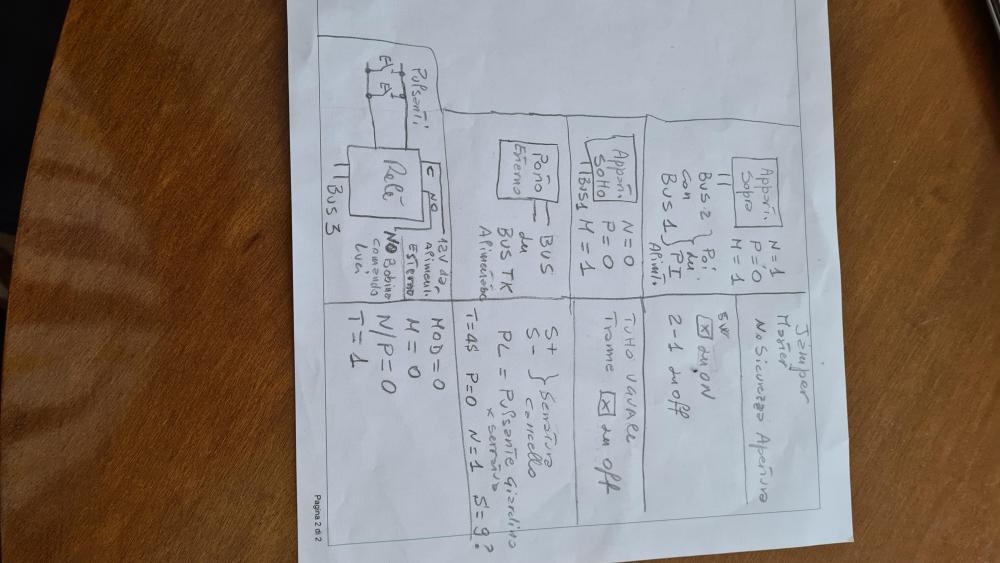 Jamper
Master
Appart.
Sopra
N=1
P=0
M=1
No Sicurezza Apertura
BUS 2
con
BUS 1
Poi
du
PI
Alimto
SW
X du ON
2-1 du off
Appart.
Sotto
BUS 1
N=0
P=0
M=1
Tutto uguale
Tranne X du off
Posto
Esterno
BUS
du
BUS TK
Alimentatore
S+
S-
Serratura
Cancello
PL = Pulsante Giardino
x serratura
T=4S P=0 N=1 S=9?
Pulsanti
Relè
C NO
BUS 3
12V da
Aliment.
Esterno
NO Bobina
comando
Luci
MOD=0
M=0
N/P=0
T=1
Pagina 2 di 2